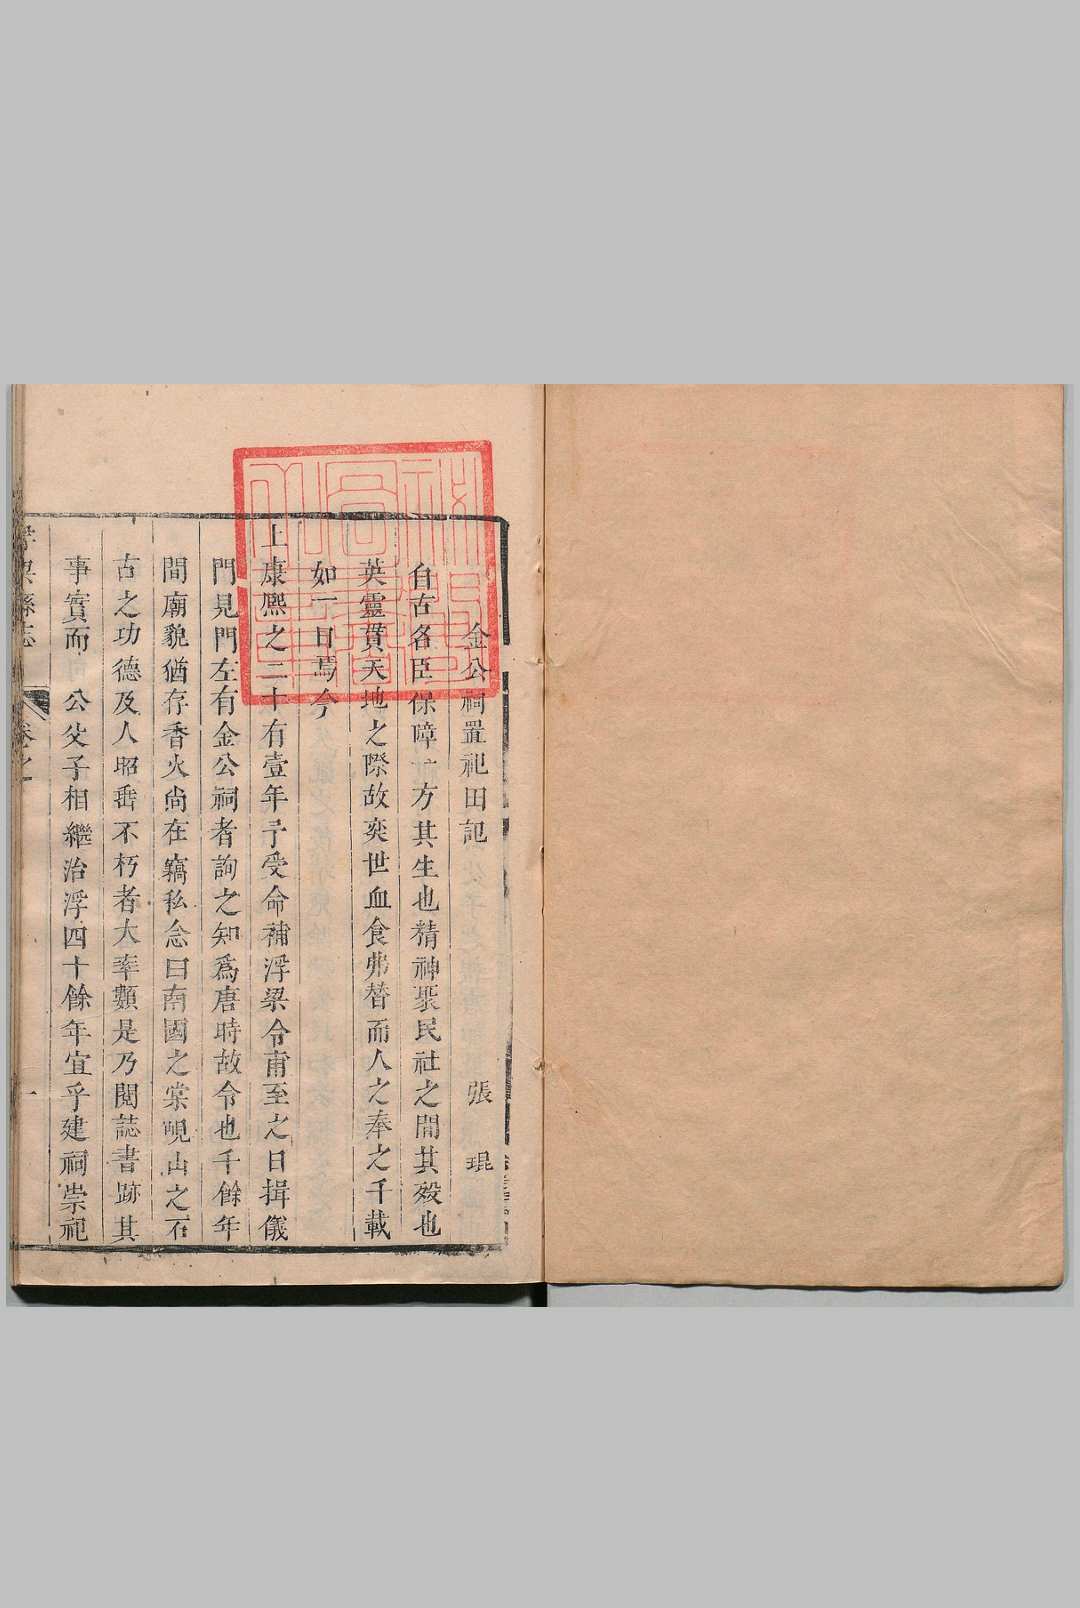 金公祠置祀田記 張琨
自古各臣保障一方其生也精神聚民社之間其歿也
英靈貫天地之際故奕世血食弗替而人之奉之千載
如一日焉今
上康熙之二十有壹年予受命補浮梁令甫至之日揖儀
門見門左有金公祠者詢之知爲唐時故令也千餘年
間廟貌猶存香火尙在竊私念曰南國之棠峴山之石
古之功德及人昭垂不朽者大率類是乃閱誌書跡其
事實而 公父子相繼治浮四十餘年宜乎建祠崇祀
縣志 卷之 一